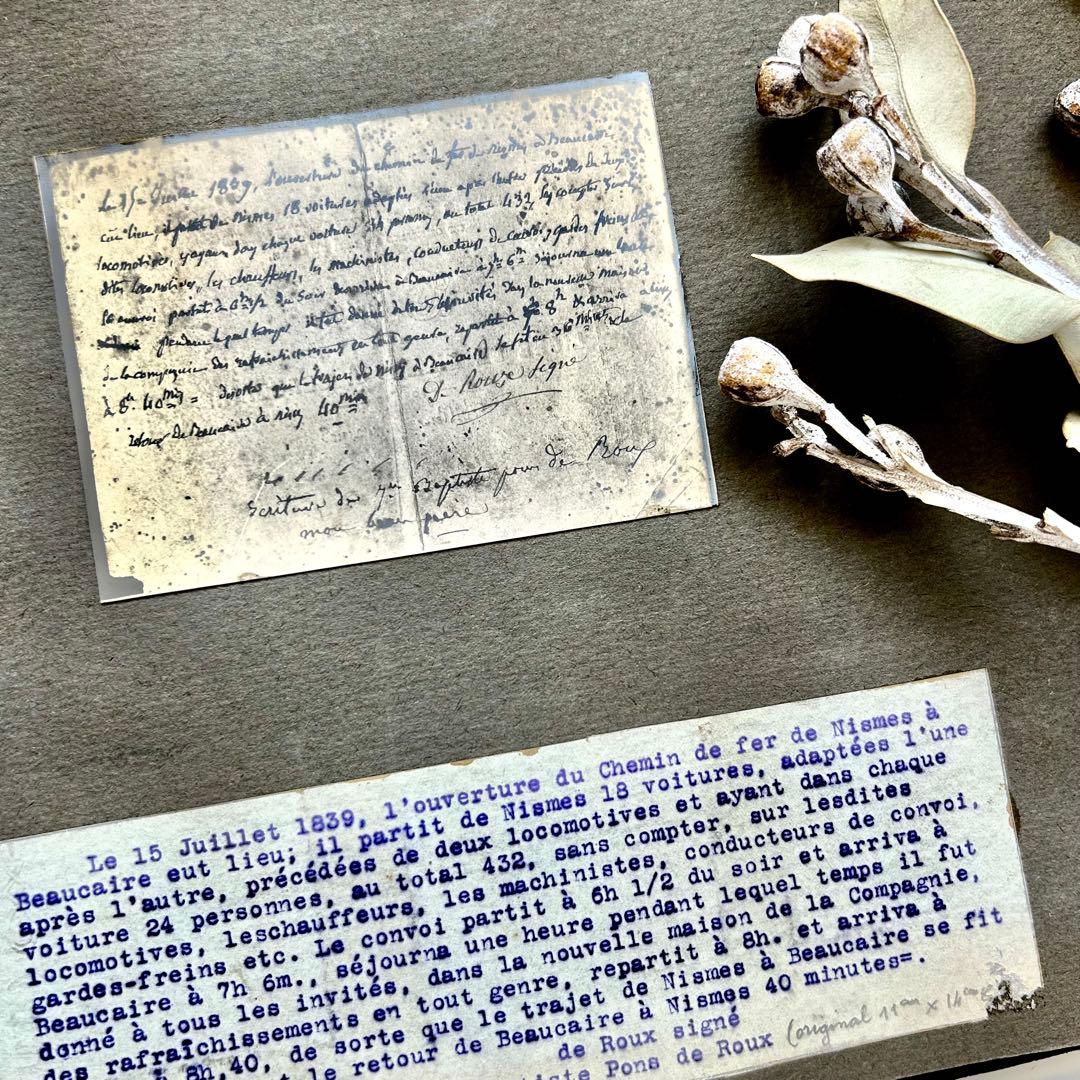 Le 15 Juillet 1839, l'ouverture du chemin de fer de Nismes à Beaucaire
eut lieu, il partit de Nismes 18 voitures adaptées l'une après l'autre précédées de deux
locomotives, ayant dans chaque voiture 24 personnes, au total 432, sans compter sur les
dites locomotives, les chauffeurs, les machinistes, conducteurs de convoi, gardes freins
le convoi partit à 6h 1/2 du soir arriva à Beaucaire à 7h 6m séjourna une heure
pendant lequel temps il fut donné à tous les invités dans la nouvelle maison
de la compagnie des rafraichissements en tout genre, repartit à 8h & arriva à
à 8h 40min = de sorte que le trajet de Nismes à Beaucaire se fit en 36 minutes & le
retour de Beaucaire à Nismes 40min
D. Roux signé
Ecriture de Baptiste pons de Roux
mon
Le 15 Juillet 1839, l'ouverture du Chemin de fer de Nismes à
Beaucaire eut lieu; il partit de Nismes 18 voitures, adaptées l'une
après l'autre, précédées de deux locomotives et ayant dans chaque
voiture 24 personnes, au total 432, sans compter, sur lesdites
locomotives, leschauffeurs, les machinistes, conducteurs de convoi,
gardes-freins etc. Le convoi partit à 6h 1/2 du soir et arriva à
Beaucaire à 7h 6m., séjourna une heure pendant lequel temps il fut
donné à tous les invités, dans la nouvelle maison de la Compagnie,
des rafraîchissements en tout genre, repartit à 8h. et arriva à
à 8h,40, de sorte que le trajet de Nismes à Beaucaire se fit
t le retour de Beaucaire à Nismes 40 minutes=.
de Roux signé
iste Pons de Roux (original 11cm x 14cm